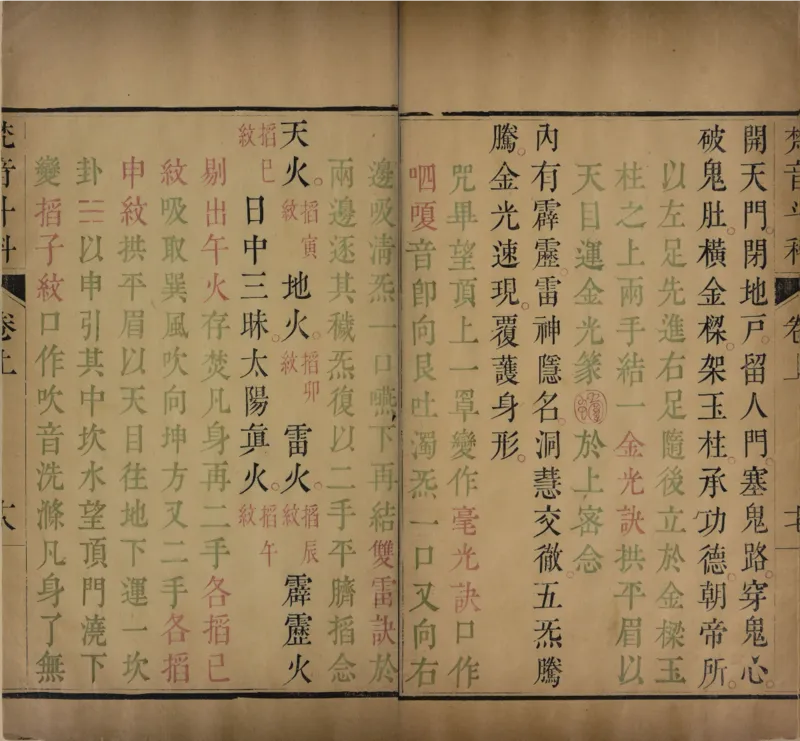 梵音斗科 卷上
開天門。閉地戶。留人門。塞鬼路。穿鬼心。
破鬼肚。橫金樑。架玉柱。承功德。朝帝所。
以左足先進右足隨後立於金樑玉
柱之上兩手結一金光訣拱平眉以
天目運金光篆於上密念
內有霹靂。雷神隱名。洞慧交徹。五炁騰
騰。金光速現。覆護身形。
咒畢望頂上一罩變作毫光訣口作
呬嗄音卽向艮吐濁炁一口又向右
邊吸清炁一口嚥下再結雙雷訣於
兩邊逐其穢炁復以二手平臍搯念
天火。搯寅紋地火。搯卯紋雷火。搯辰紋霹靂火
搯巳紋日中三昧太陽眞火。搯午紋
剔出午火存焚凡身再二手各搯巳
紋吸取巽風吹向坤方又二手各搯
申紋拱平眉以天目往地下運一坎
卦☵以申引其中坎水望頂門澆下
變搯子紋口作吹音洗滌凡身了無
梵音斗科 卷上